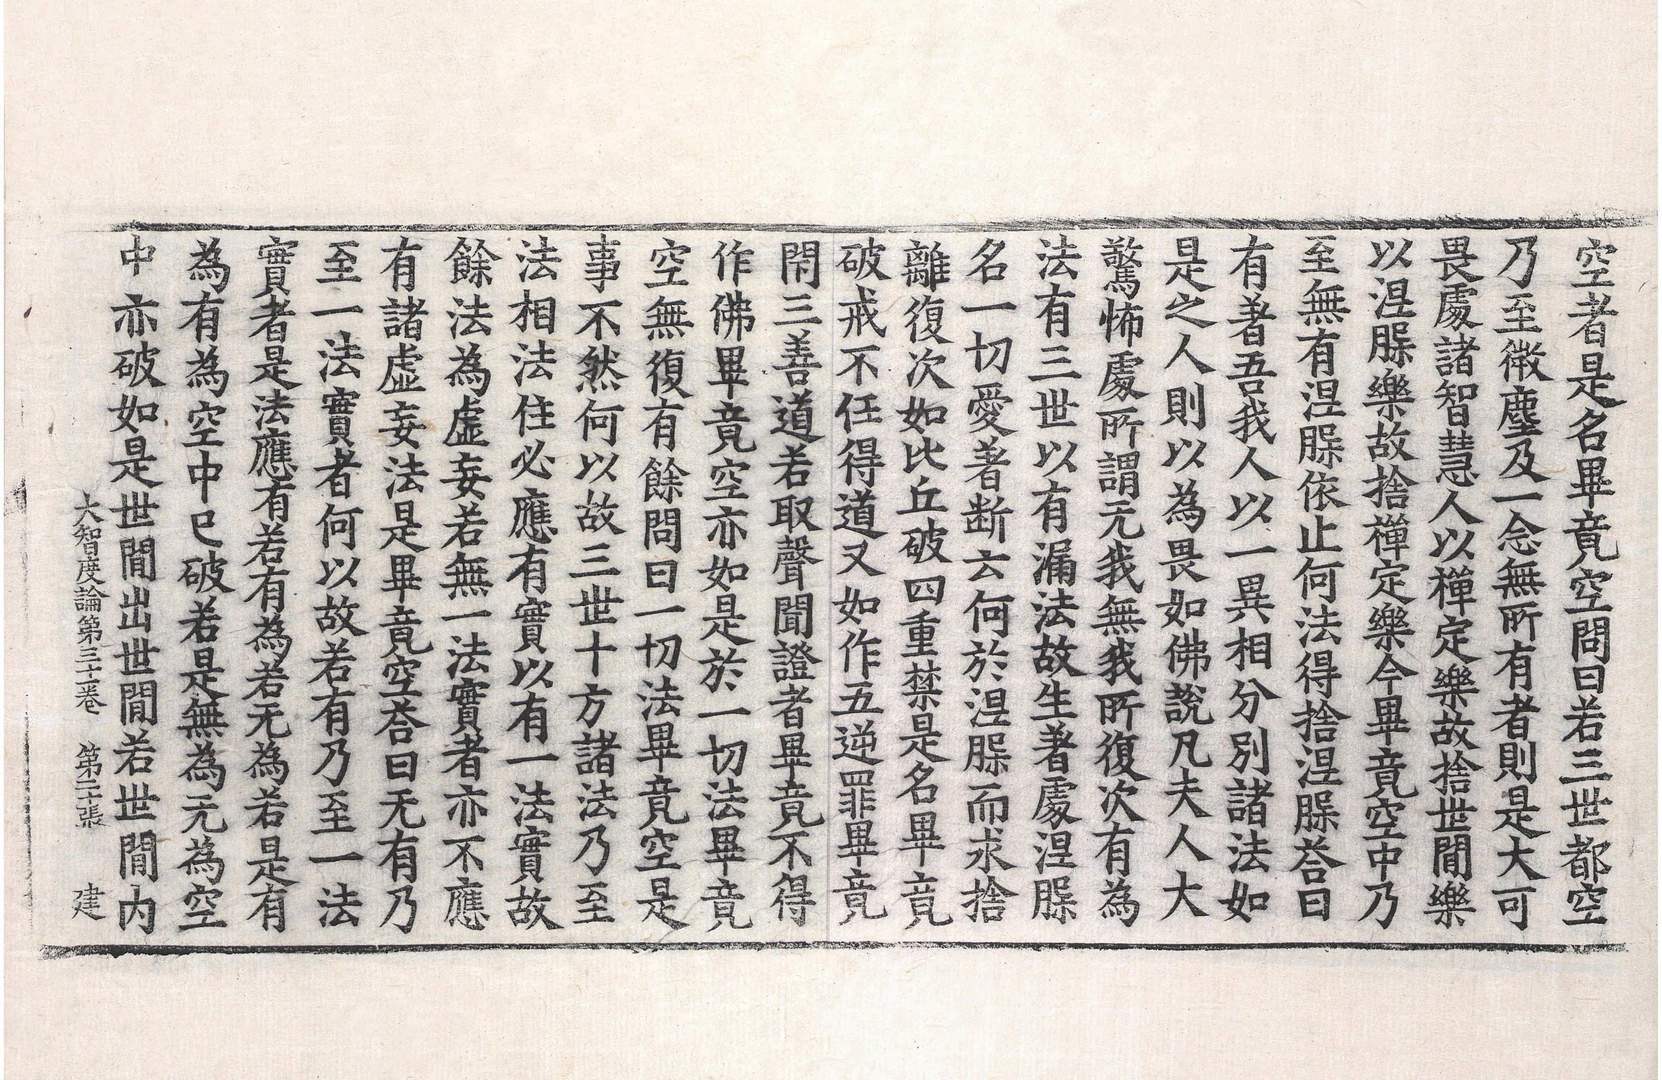 空者是名畢竟空問曰若三世都空
乃至微塵及一念無所有者則是大可
畏處諸智慧人以禪定樂故捨世間樂
以涅槃樂故捨禪定樂今畢竟空中乃
至無有涅槃依止何法得捨涅槃荅曰
有著吾我人以一異相分別諸法如
是之人則以為畏如佛說凡夫人大
驚怖處所謂无我無我所復次有為
法有三世以有漏法故生著處涅槃
名一切愛著斷云何於涅槃而求捨
離復次如比丘破四重禁是名畢竟
破戒不任得道又如作五逆罪畢竟
閇三善道若取聲聞證者畢竟不得
作佛畢竟空亦如是於一切法畢竟
空無復有餘問曰一切法畢竟空是
事不然何以故三世十方諸法乃至
法相法住必應有實以有一法實故
餘法為虛妄若無一法實者亦不應
有諸虛妄法是畢竟空荅曰无有乃
至一法實者何以故若有乃至一法
實者是法應有若有為若无為若是有
為有為空中已破若是無為无為空
中亦破如是世間出世間若世間內
大智度論第三十一卷 第二十張 建